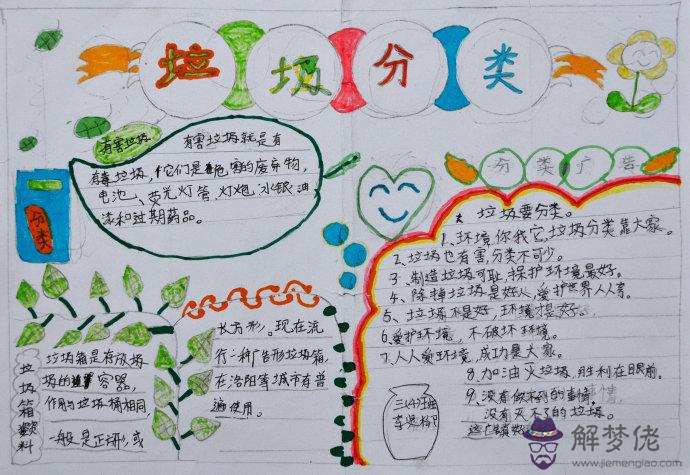 垃圾分类
有害垃圾
有害垃圾就是有
有毒垃圾,它们是危害的废弃物,
电池、荧光灯管、灯炮、水银、油
漆和过期药品。
分类
分类广告
垃圾要分类。
1、环境你我它,垃圾分类靠大家。
2、垃圾也有害,分类不可少。
3、制造垃圾可耻,保护环境最好。
4、除掉垃圾是好人,爱护世界人人享。
5、垃圾不是好,环境才是好。
6、爱护环境,不破坏环境。
7、人人爱环境,成功是大家。
8、加油灭垃圾,胜利在眼前。
9、没有做不到的事情,
没有灭不了的垃圾。
垃圾箱资料
垃圾箱是存放垃
圾的容器,
作用与垃圾桶相同,
一般是正方形,或
长方形。现在流
行一种广告形垃圾箱,
在洛阳等城市有普
遍使用。
解梦佬
www.jiemenglao.com